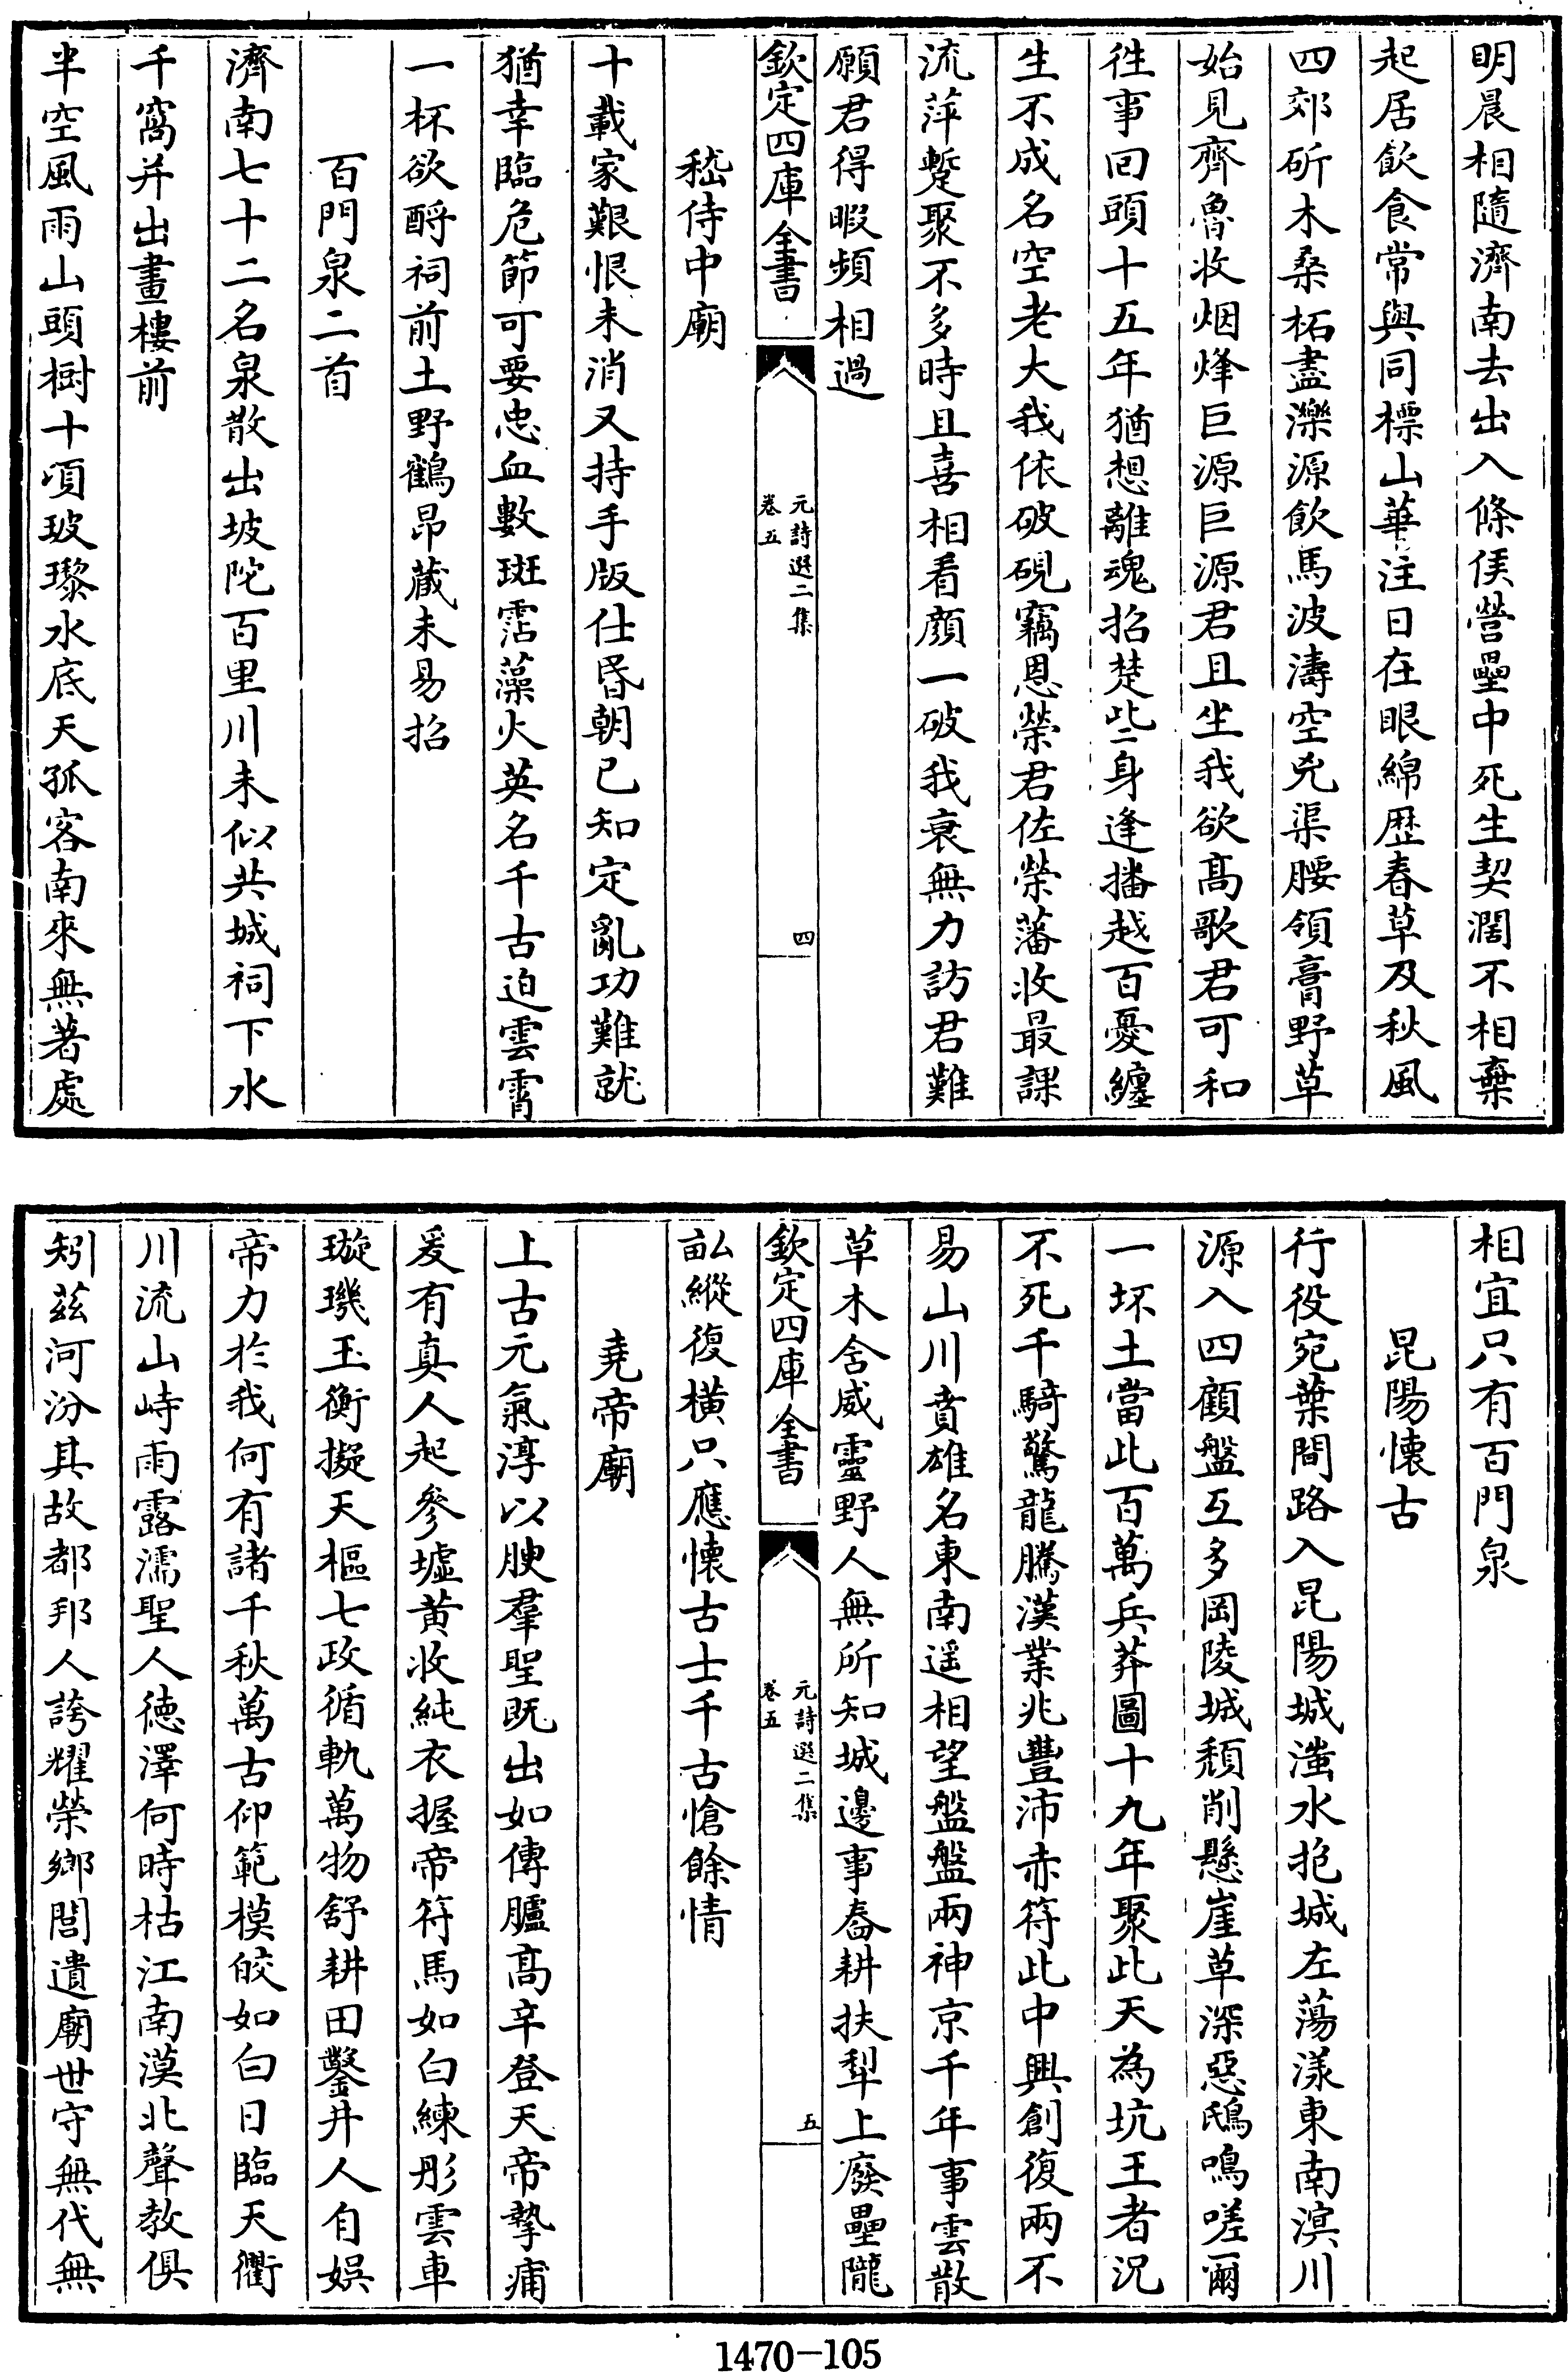 明晨相隨濟南去出入條侯營壘中死生契濶不相棄
起居飲食常與同標山華注日在眼綿歴春草及秋風
四郊斫木桑柘盡濼源飲馬波濤空兇渠腰領膏野草
始見齊魯收烟烽巨源巨源君且坐我欲髙歌君可和
徃事回頭十五年猶想離魂招楚些身逢播越百憂纏
生不成名空老大我依破硯竊恩榮君佐榮藩收最課
流萍蹔聚不多時且喜相看顔一破我衰無力訪君難
願君得暇頻相過
欽定四庫全書
元詩選二集
卷五
四
嵇侍中廟
十載家艱恨未消又持手版仕昏朝已知定亂功難就
猶幸臨危節可要忠血數斑霑藻火英名千古迫雲霄
一杯欲酹祠前土野鶴昂藏未易招
百門泉二首
濟南七十二名泉散出坡陀百里川未似共城祠下水
千窩并出畫樓前
半空風雨山頭樹十頃玻瓈水底天孤客南來無著處
相宜只有百門泉
昆陽懷古
行役宛葉間路入昆陽城滍水抱城左蕩漾東南溟川
源入四顧盤互多岡陵城頽削懸崖草深惡鴟鳴嗟爾
一坏土當此百萬兵莽圖十九年聚此天為坑王者況
不死千騎驚龍騰漢業兆豐沛赤符此中興創復兩不
易山川賁雄名東南遥相望盤盤兩神京千年事雲散
草木含威靈野人無所知城邊事畬耕扶犂上廢壘隴
欽定四庫全書
元詩選二集
卷五
五
畝縱復横只應懷古士千古愴餘情
堯帝廟
上古元氣淳以腴羣聖既出如傳臚髙辛登天帝摯痡
爰有真人起參墟黄收純衣握帝符馬如白練彤雲車
璇璣玉衡擬天樞七政循軌萬物舒耕田鑿井人自娯
帝力於我何有諸千秋萬古仰範模皎如白日臨天衢
川流山峙雨露濡聖人徳澤何時枯江南漠北聲教俱
矧兹河汾其故都邦人誇耀榮鄉閭遺廟世守無代無
1470-105